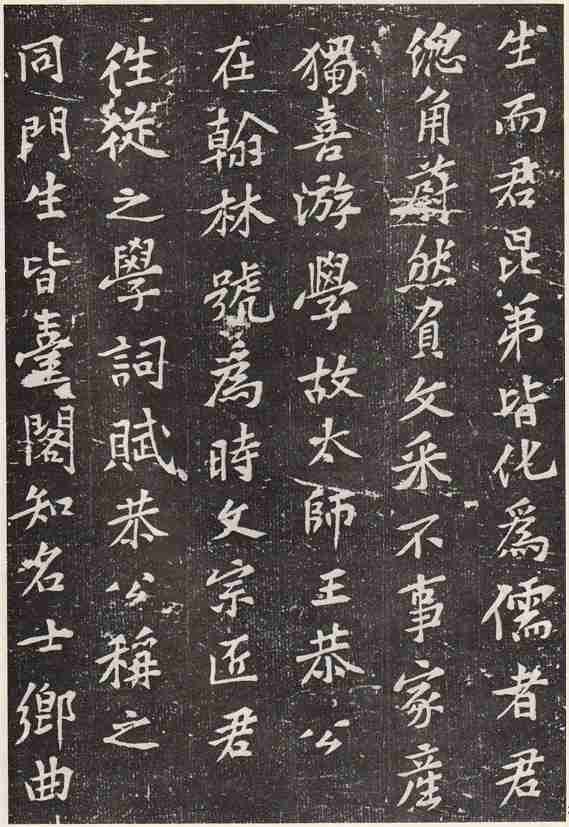 生而君昆弟皆化為儒者君
總角蔚然負文采不事家産
獨喜游學故太師王恭公
在翰林號為時文宗匠君
往從之學詞賦恭公稱之
同門生皆臺閣知名士鄉曲